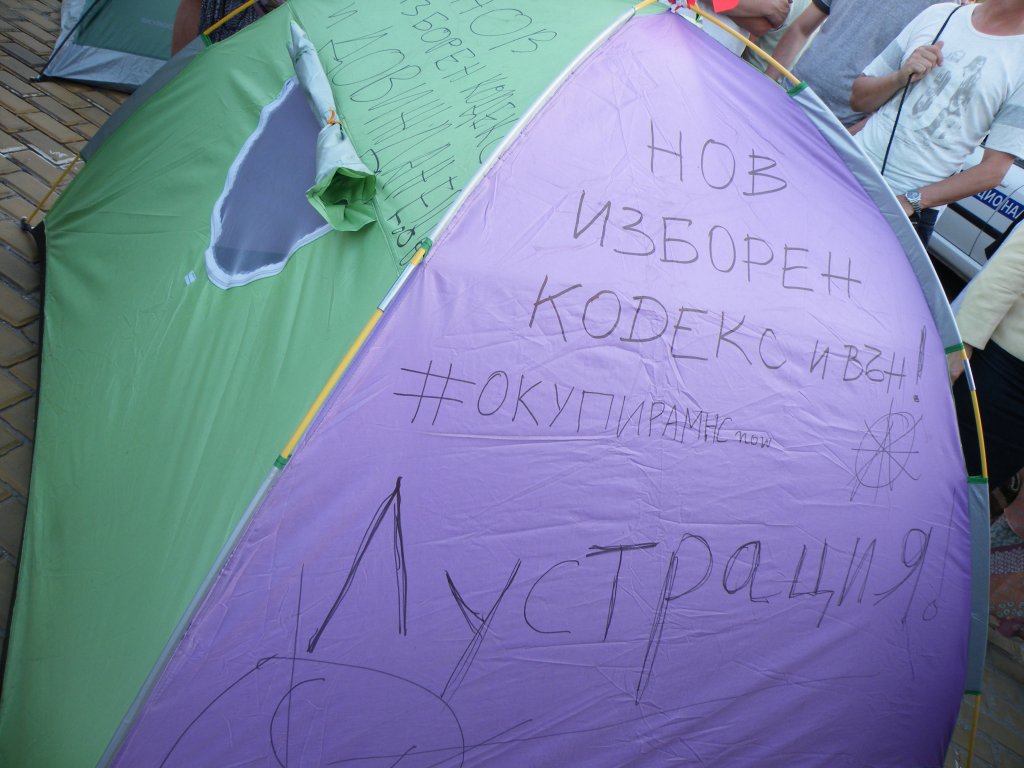 НОВ
ИЗБОРЕН
КОДЕКС
И ДОВИЖДАНЕ
НОВ
ИЗБОРЕН
КОДЕКС И ВЪН!
#ОКУПИРАМНС now
Лустрация!